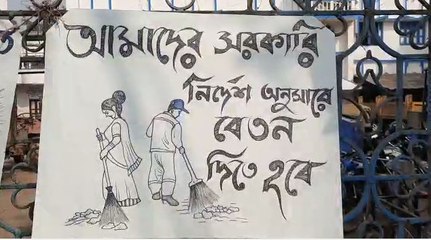 আমাদের সরকারি
নির্দেশ অনুসারে
বেতন
দিতে হবে